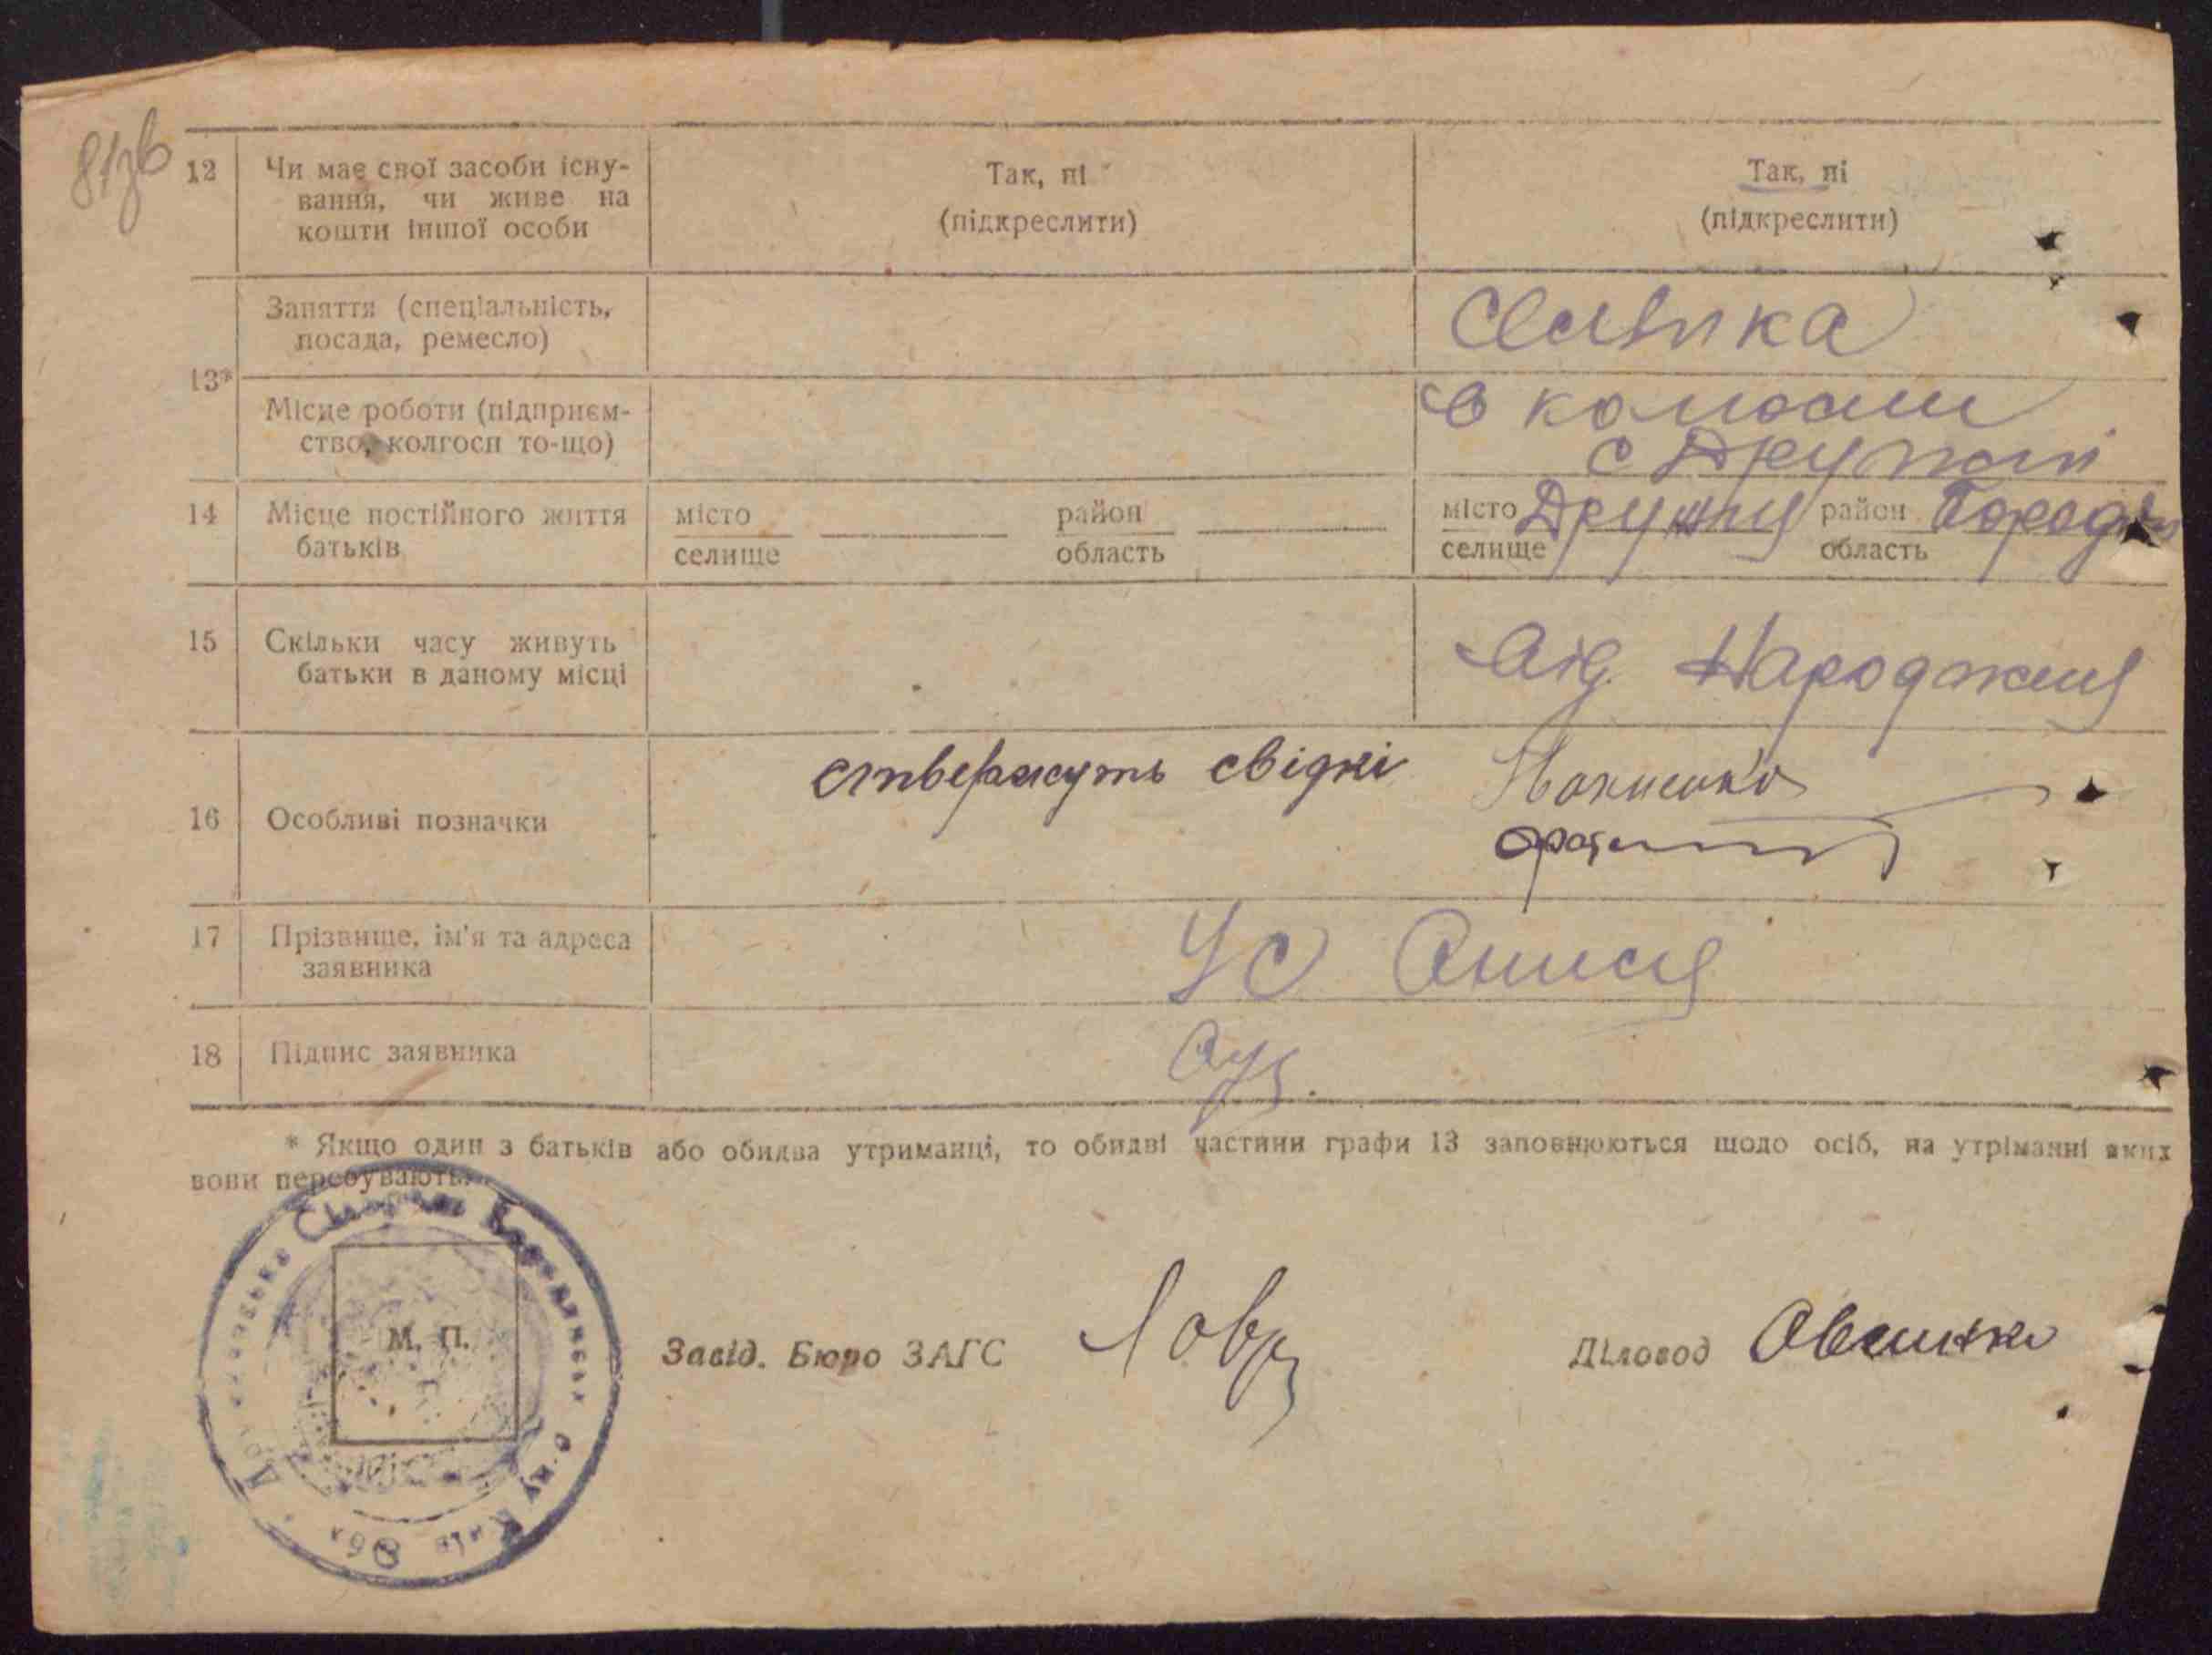 81зв
12
Чи має свої засоби існу-
вання, чи живе на
кошти іншої особи
Так, ні
(підкреслити)
Так, ні
(підкреслити)
13*
Заняття (спеціальність,
посада, ремесло)
Місце роботи (підприєм-
ство, колгосп то-що)
в
с
14
Місце постійного життя
батьків
місто
селище
район
область
місто Дружня
селище
район Бородян
область
15
Скільки часу живуть
батьки в даному місці
від Народженя
16
Особливі позначки
ствержуть свідкі
17
Прізвище, ім'я та адреса
заявника
Ус Анися
18
Підпис заявника
* Якщо один з батьків або обидва утриманці, то обидві частини графи 13 заповнюються щодо осіб, на утріманні яких
вони перебувають.
М. П.
Завід. Бюро ЗАГС
Діловод